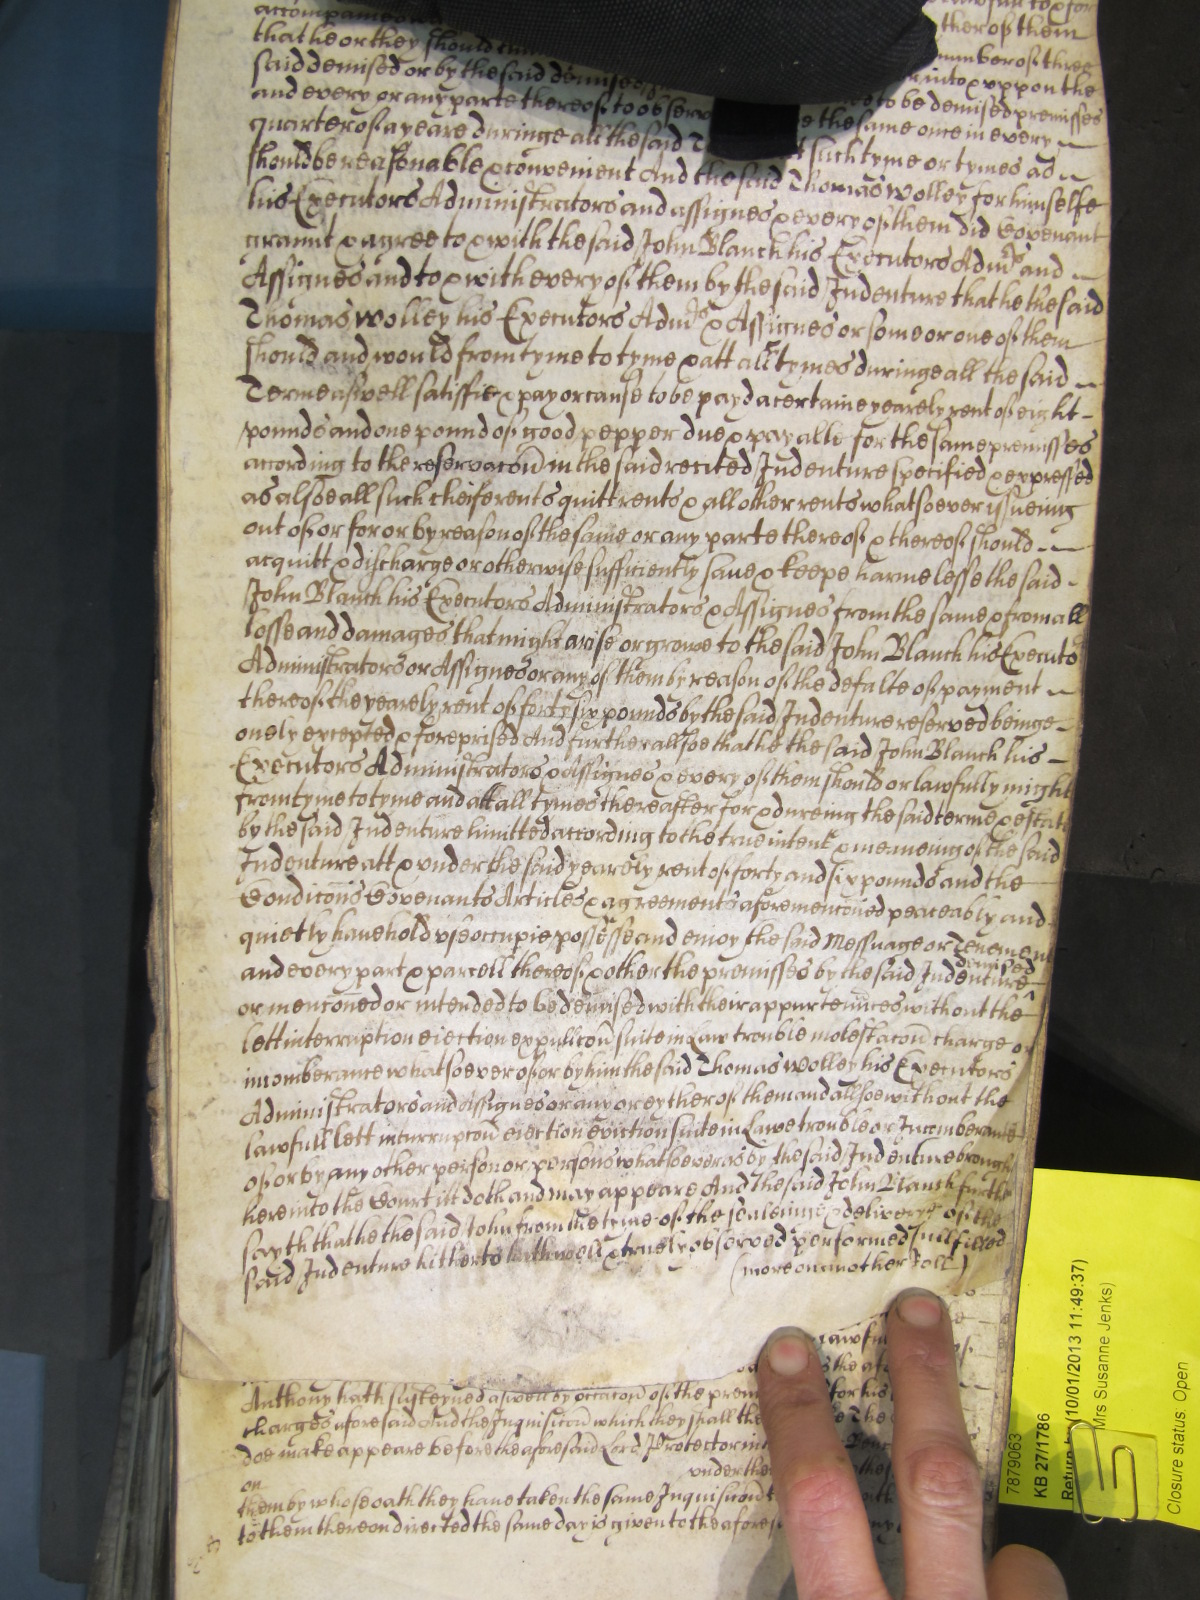 accompanied
that he or they should
said demised or by the said demised
and every or any parte thereof to observe
quarter of a yeare duringe all the said T
lawfull to & for
ther of them
number of three
into & uppon the
ed to be demised premisses
the same once in every
t such tyme or tymes as
should be reasonable & convenient And the said Thomas Wolley for himselfe
his Executors Administrators and assignes & every of them did Covenant
graunt & agree to & with the said John Blanck his Executors Admrs and
Assignes and to & with every of them by the said Indenture that he the said
Thomas Wolley his Executors Admrs & Assignes or some or one of them
should and would from tyme to tyme & att all tymes duringe all the said
Terme aswell satisfie & pay or cause to be payd a certaine yearely rent of eight
pounds and one pound of good pepper due & payable for the same premisses
according to the reservacōn in the said recited Indenture specified & expressed
as alsoe all such cheife rents quitt rents & all other rents whatsoever issueing
out of or for or by reason of the same or any parte thereof & thereof should
acquitt & discharge or otherwise sufficiently save & keepe harmelesse the said
John Blanck his Executors Administrators & Assignes from the same & from all
losse and damages that might arise or growe to the said John Blanck his Executors
Administrators or Assignes or any of them by reason of the defalte of payment
thereof the yearely rent of forty six pounds by the said Indenture reserved beinge
onely excepted & foreprised And further allsoe that he the said John Blanck his
Executors Administrators & Assignes & every of them should or lawfully might
from tyme to tyme and att all tymes thereafter for & dureing the said terme & estate
by the said Indenture limitted according to the true intent & meaneing of the said
Indenture att & under the said yearely rent of forty and six pounds and the
Condicōns Covenants Articles & agreements aforemencōned peaceably and
quietly have hold use occupie possesse and enioy the said Messuage or Tenement
and every part & parcell thereof & other the premisses by the said Indenture
demised
or mencōned or intended to be demised with their appurtenn̄ces without the
lett interruption eiection expulcōn suite in Law trouble molestacōn charge or
incomberance whatsoever of or by him the said Thomas Wolley his Executors
Administrators and Assignes or any or eyther of them and allsoe without the
lawfull lett interrupcōn eiection eviction suite in Lawe trouble or Incomberance
of or by any other person or persons whatsoever as by the said Indenture brought
here into the Court itt doth and may appeare And the said John Blanck further
sayth that he the said John from the tyme of the sealeing & delivery of the
said Indenture hitherto hath well & truely observed performed fulfilled
(more on another Roll)
lawfu
Anthony hath susteyned aswell by occacōn of the prem for his
charges aforesaid And the Inquisicōn which they shall the
doe make appeare before the aforesaid Lord Protector in
under the
on
them by whose oath they have taken the same Inquisicōn
to them thereon directed the same day is given to the afores
7879063
KB 27/1786
Return by (10/01/2013 11:49:37)
Mrs Susanne Jenks)
Closure status: Open